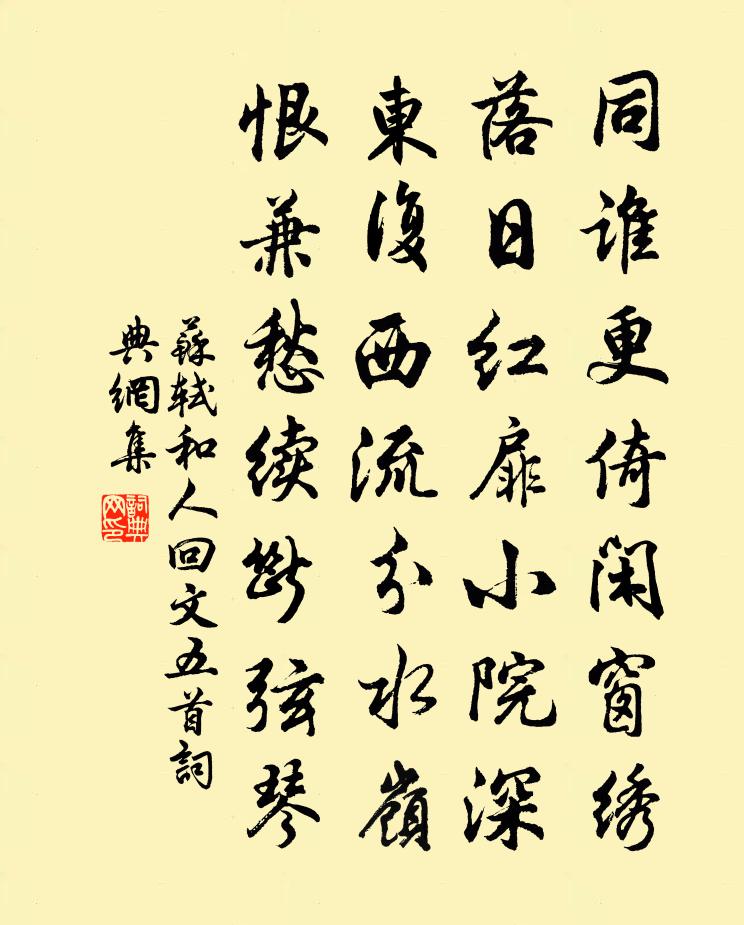 同谁更倚闲窗绣
落日红扉小院深
東復西流分水嶺
恨兼愁续断弦琴
蘇軾和人回文五首詞
典網集
詞典
网印